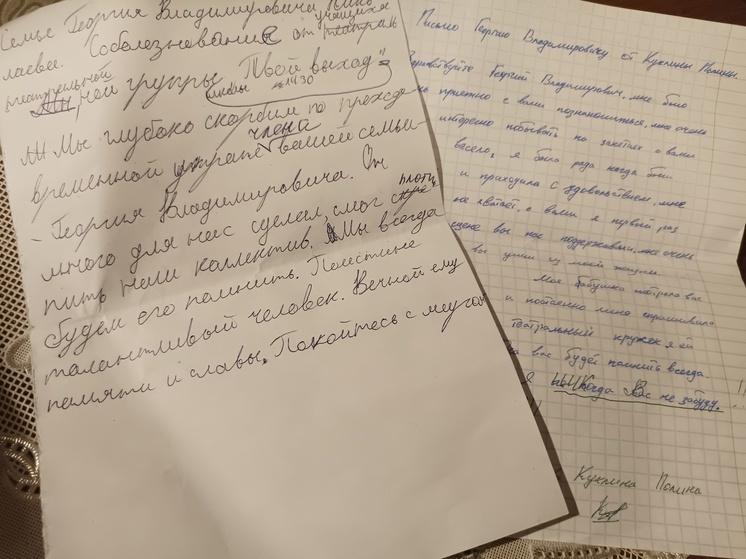 Семье Георгия Владимировича Нико
лаева. Соболезнование от учащихся
театраль
театральной
ной группы "Твой выход"
школы №1430
Мы глубоко скорбим по прежде
временной утрате члена вашей семьи -
- Георгия Владимировича. Он
много для нас сделал, смог сплоти
пить наш коллектив. Мы всегда
будем его помнить. Поистине
талантливый человек. Вечной ему
памяти и славы. Покойтесь с миром
Письмо Георгию Владимировичу от Куклины Полины.
Здравствуйте Георгий Владимирович, мне было
приятно с вами познакомиться, мне очень
интересно побывать на занятиях с вами
весело, я была рада когда были
и приходила с удовольствием, мне
не хватает, с вами я первый раз
сцене вы нас поддерживали, мне очень
вы ушли из моей жизни
Моя бабушка вас
и постоянно меня спрашивала
театральный кружек я ей
за вас будет помнить всегда
Я никогда Вас не забуду.
Куклина Полина